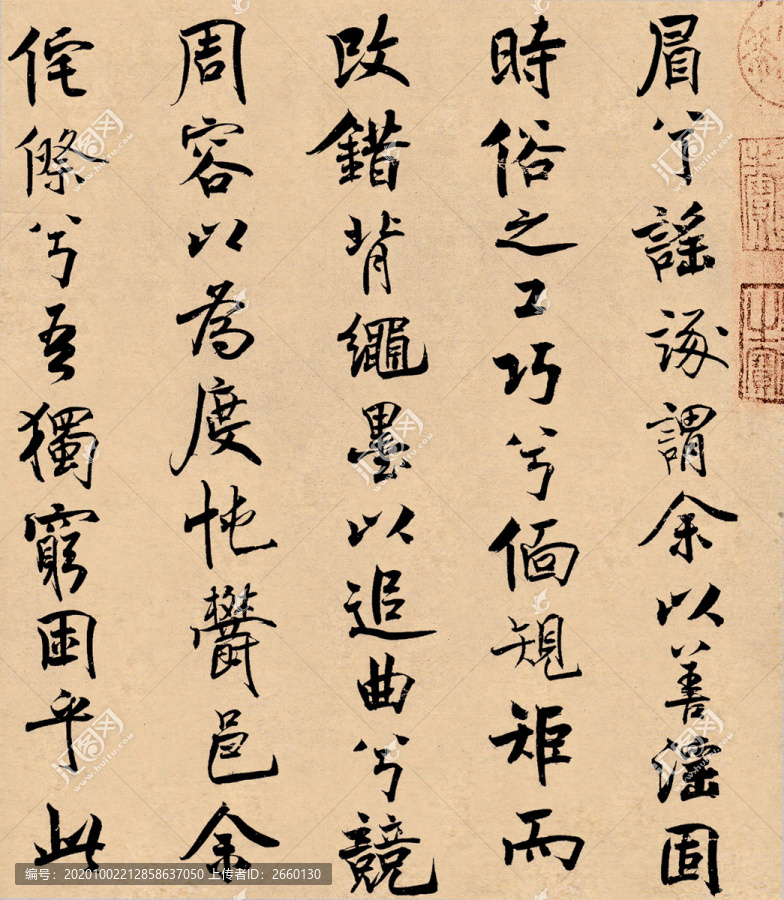 眉兮謠諑謂余以善淫固
時俗之工巧兮偭規矩而
改錯背繩墨以追曲兮競
周容以為度忳鬱邑余
侘傺兮吾獨窮困乎此
编号：20201002212858637050 上传者ID：2660130
汇图网
www.huitu.com